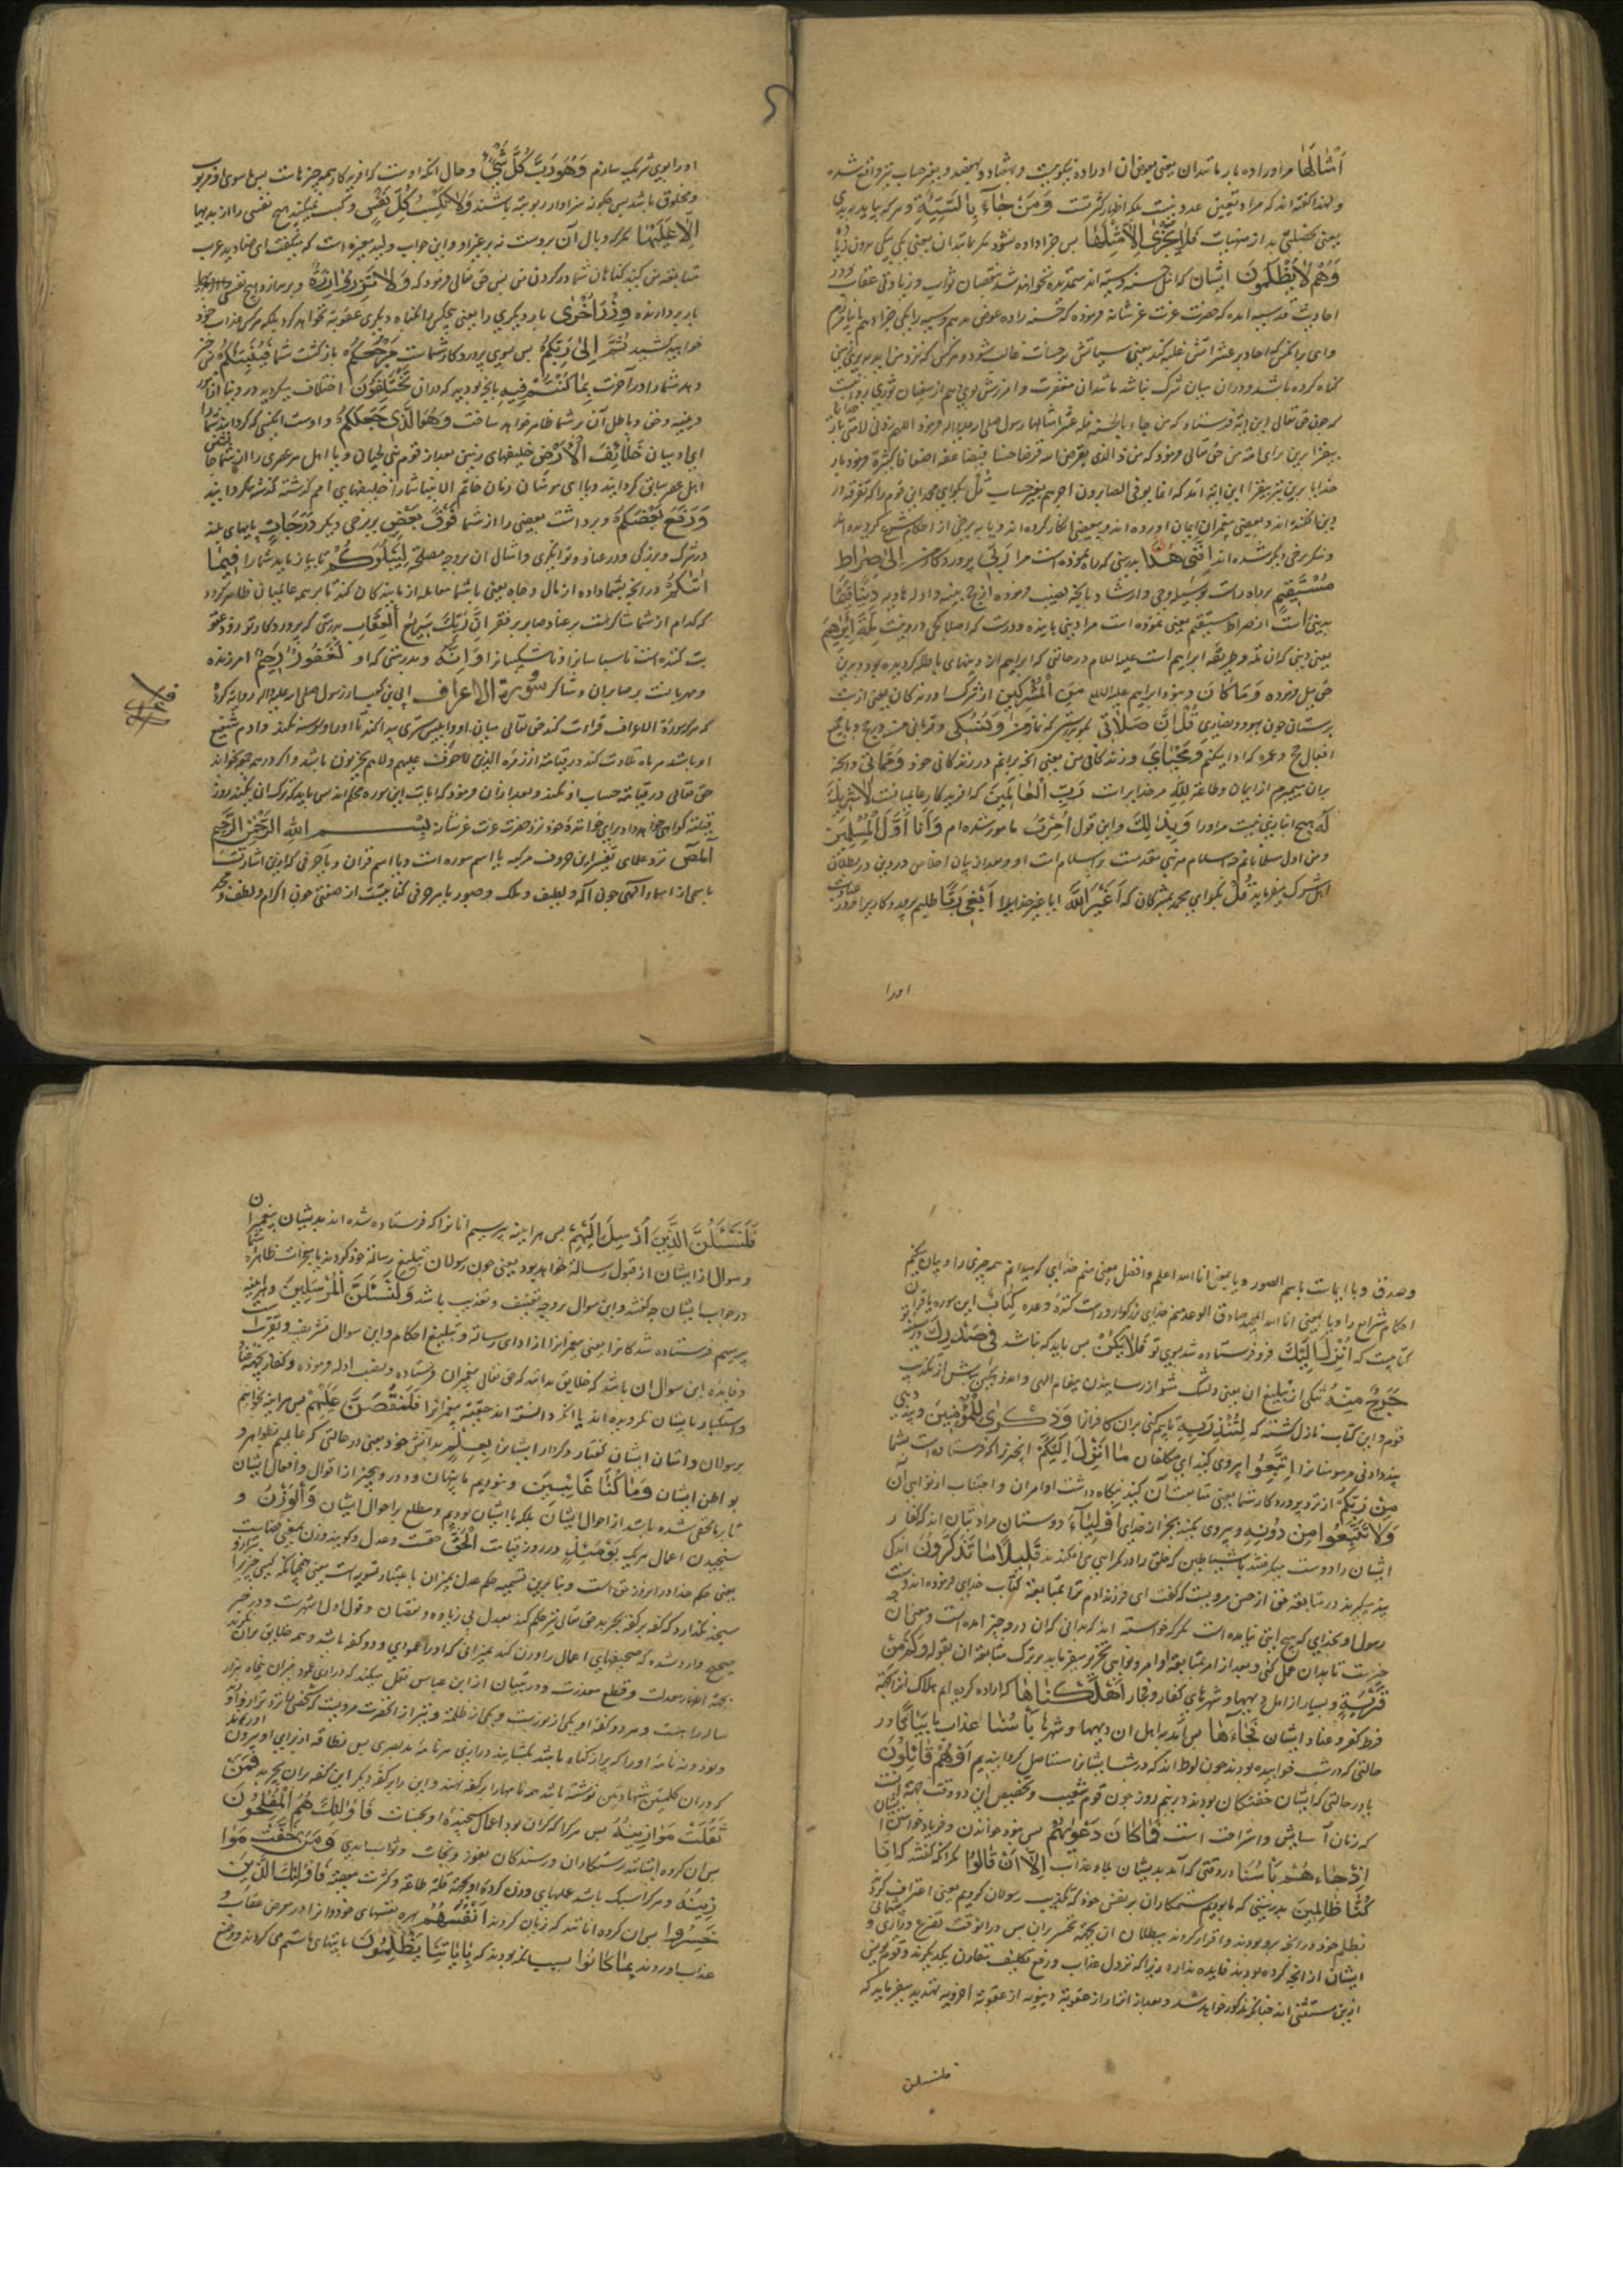 أَمْثَالِهَا مر او را ده بار مانند آن یعنی بعوض آن او را ده نیکوییست و بهفتاد و بهفصد و بغیر حساب نیز واقع شده
و لهذا گفته اند که مراد تعیین عدد نیست بلکه اظهار کثرتست وَمَنْ جَاءَ بِالسَّيِّئَةِ و هر که بیاید ببدی
یعنی بخصلتی بد از منهیات فَلَا يُجْزَىٰ إِلَّا مِثْلَهَا پس جزا داده نشود مکر مانند آن یعنی یکی بیکی
وَهُمْ لَا يُظْلَمُونَ ایشان که اهل حسنه و سیئه اند ستمدیده نخواهند شد بنقصان ثواب و زیادتی عقاب و در
احادیث قدسیه آمده که حضرت عزت عز شانه فرموده که حسنه را ده عوض بدهم و سیئه را یکی جزا دهم
وای بر آنکس که آحاد بر عشراتش غلبه کند یعنی سیئاتش بر حسنات غالب شود و هر کس که نزد من آید
گناه کرده باشد و در آن میان شرک نباشد مانند آن مغفرت و آمرزش بوی دهم از سفیان ثوری روایت
که چون حق تعالی این آیة فرستاد که من جاء بالحسنة فله عشر امثالها رسول صلی الله علیه و اله فرمود اللهم زدنی لامتی
بیفزا برین برای امت من حق تعالی فرمود که من ذا الذی یقرض الله قرضا حسنا فیضاعفه اضعافا کثیرة فرمود بار
خدایا برین نیز بیفزا این آیة آمد که انما یوفی الصابرون اجرهم بغیر حساب قُلْ بگو ای محمد این قوم را که تفرقه در
دین افکنده اند و ببعضی پیغمبران ایمان آورده اند و ببعضی انکار کرده اند و یا به برخی از احکام شرع گرویده اند
و منکر برخی دیگر شده اند إِنَّنِي هَدَانِي بدرستی که راه نموده است مرا رَبِّي پروردگار من إِلَىٰ صِرَاطٍ
مُسْتَقِيمٍ براه راست بوسیله وحی و ارشاد و بانچه نصب فرموده از حجج بینه و ادله هادیه دِينًا قِيَمًا
بدینی راست از صراط مستقیم یعنی نموده است مرا دینی پاینده و درست که اصلا کجی در و نیست مِلَّةَ إِبْرَاهِيمَ
یعنی دینی که آن ملة و طریقه ابراهیم است علیه السلام در حالتی که ابراهیم از دینهای باطله گردیده بود و بدین
حق میل فرموده وَمَا كَانَ و نبود ابراهیم علیه السلام مِنَ الْمُشْرِكِينَ از شرک آورندگان یعنی از بت
پرستان چون یهود و نصاری قُلْ إِنَّ صَلَاتِي بگو بدرستی که نماز من وَنُسُكِي و قربانی من در حج و یا جمیع
افعال حج و عمره که ادا میکنم وَمَحْيَايَ و زندگانی من یعنی آنچه بر آنم در زندگانی خود وَمَمَاتِي و آنچه
بران میمیرم از ایمان و طاعة لِلَّهِ مر خدایراست رَبِّ الْعَالَمِينَ که آفریدگار عالمیانست لَا شَرِيكَ
لَهُ هیچ انبازی نیست مر او را وَبِذَٰلِكَ و باین قول أُمِرْتُ مامور شده ام وَأَنَا أَوَّلُ الْمُسْلِمِينَ
و من اول مسلمانانم چه اسلام هر نبی مقدمست بر اسلام امت او و بعد از بیان اخلاص در دین در بطلان
اهل شرک میفرماید قُلْ بگو ای محمد بمشرکان که أَغَيْرَ اللَّهِ آیا غیر خدایرا أَبْغِي رَبًّا طلبم پروردگار
اورا
او را بوی شریک سازم وَهُوَ رَبُّ كُلِّ شَيْءٍ و حال آنکه اوست که آفریدگار همه چیزهاست پس ما سوی او مربوب
و مخلوق باشد پس چگونه سزاوار ربوبیة باشند وَلَا تَكْسِبُ كُلُّ نَفْسٍ و کسب نمیکند هیچ نفسی را از بدیها
إِلَّا عَلَيْهَا مکر که وبال آن بروست نه بر غیر او و این جواب ولید مغیره است که میگفت ای صنادید عرب
متابعة من کنید گناهان شما در گردن من پس حق تعالی فرمود که وَلَا تَزِرُ وَازِرَةٌ و بر ندارد هیچ نفسی
بار بردارنده وِزْرَ أُخْرَىٰ بار دیگری را یعنی هیچکس را بگناه دیگری عقوبة نخواهد کرد بلکه هر کس عذاب خود
خواهد کشید ثُمَّ إِلَىٰ رَبِّكُمْ پس بسوی پروردگار شماست مَرْجِعُكُمْ بازگشت شما فَيُنَبِّئُكُمْ پس خبر
دهد شما را در آخرت بِمَا كُنْتُمْ فِيهِ بانچه بودید که در آن تَخْتَلِفُونَ اختلاف میکردید در دنیا از امور
دینیه و حق و باطل آن بر شما ظاهر خواهد ساخت وَهُوَ الَّذِي جَعَلَكُمْ و اوست آنکسی که گردانید شما را
ای آدمیان خَلَائِفَ الْأَرْضِ خلیفهای زمین بعد از قوم بنی الجان و یا اهل هر عصری را از شما
اهل عصر سابق گردانید و یا ای مومنان زمان خاتم الانبیا شما را خلیفهای امم گذشته گردانید
وَرَفَعَ بَعْضَكُمْ و برداشت بعضی را از شما فَوْقَ بَعْضٍ بر برخی دیگر دَرَجَاتٍ پایهای بلند
در شرف و بزرگی و در عناد و توانگری و امثال آن بر وجه مصلحة لِيَبْلُوَكُمْ تا بیازماید شما را فِيمَا
آتَاكُمْ در آنچه بشما داده از مال و جاه یعنی با شما معامله آزمایندگان کند تا بر همه عالمیان ظاهر گردد
که کدام از شما شاکر است بر غنا و صابر بر فقر إِنَّ رَبَّكَ سَرِيعُ الْعِقَابِ بدرستی که پروردگار تو زود عقو
بت کننده است ناسپاسان را و ناشکیبان را وَإِنَّهُ و بدرستی که او لَغَفُورٌ رَحِيمٌ آمرزنده
و مهربانست بر صابران و شاکر سُورَةُ الْأَعْرَافِ ابی بن کعب از رسول صلی الله علیه و اله روایة کرده
که هر که سورة الاعراف قراءت کند حق تعالی میان او و ابلیس ستری پیدا کند تا او را وسوسه نکند و آدم شفیع
او باشد هر ماه تلاوت کند در قیامة از زمره الذین لا خوف علیهم و لا هم یحزنون باشد و اگر در هر جمعه بخواند
حق تعالی در قیامة حساب او نکند و بعد از آن فرمود که آیات این سوره محکم اند پس باید که ترک آن نکنند روز
قیامة گواهی خواهد داد برای خواننده خود نزد حضرت عزت عز شانه بِسْمِ اللَّهِ الرَّحْمَٰنِ الرَّحِيمِ
الٓمٓصٓ نزد علمای تفسیر این حروف مرکبه یا اسم سوره است و یا اسم قرآن و یا هر حرفی ازین اشارتست
باسمی از اسماء الهی چون اله و لطیف و ملک و صبور یا هر حرفی کنایتست از صفتی چون اکرام و لطف و مجد
و صدق و یا ایماست باسم المصور و یا یعنی انا الله اعلم و افضل یعنی منم خدایی که میدانم همه چیزی را و بیان میکنم
احکام شرایع را و یا یعنی انا الله المجید صادق الوعد منم خدای بزرگوار و راست کننده وعده كِتَابٌ این سوره یا قرآن
کتابیست که أُنْزِلَ إِلَيْكَ فرو فرستاده شد بسوی تو فَلَا يَكُنْ پس باید که نباشد فِي صَدْرِكَ در سینه تو
حَرَجٌ مِنْهُ تنگی از تبلیغ آن یعنی دلتنگ مشو از رسانیدن پیغام الهی و اندوهگین مباش از تکذیب
قوم و این کتاب نازل گشته که لِتُنْذِرَ بِهِ تا بیم کنی بر آن کافران را وَذِكْرَىٰ لِلْمُؤْمِنِينَ و پندی
پند دادنی مر مومنان را اتَّبِعُوا پیروی کنید ای مکلفان مَا أُنْزِلَ إِلَيْكُمْ آنچه را که فرستاده است بشما
مِنْ رَبِّكُمْ از نزد پروردگار شما یعنی متابعت آن کنید بنگاه داشت اوامر آن و اجتناب از نواهی آن
وَلَا تَتَّبِعُوا مِنْ دُونِهِ و پیروی مکنید بجز از خدای أَوْلِيَاءَ دوستان مراد بتان اند که کفار
ایشان را دوست میگرفتند یا شیاطین که خلق را در گمراهی می افکندند قَلِيلًا مَا تَذَكَّرُونَ اندکی
پند میگیرید در متابعة حق از حسن مرویست که گفت ای فرزند آدم تو را بمتابعة کتاب خدای فرموده اند و سنت
رسول او بخدایی که هیچ آیتی نیامده است مکر که خواسته اند که بدانی که آن در چه چیز آمده است و معنی آن
چیست تا بدان عمل کنی و بعد از امر بمتابعة اوامر و نواهی تحریر میفرماید بر ترک متابعة آن بقوله وَكَمْ مِنْ
قَرْيَةٍ و بسیار از اهل دیهها و شهرهای کفار و فجار أَهْلَكْنَاهَا که اراده کردیم هلاک آنرا بجهة
فرط کفر و عناد ایشان فَجَاءَهَا پس آمد به اهل آن دیهها و شهرها بَأْسُنَا عذاب ما بَيَاتًا در
حالتی که در شب خوابیده بودند چون لوط اند که در شب ایشان را مستاصل گردانیدیم أَوْ هُمْ قَائِلُونَ
یا در حالتی که ایشان خفتگان بودند در نیم روز چون قوم شعیب و تخصیص این دو وقت بجهة آنست
که زمان آسایش و استراحت است فَمَا كَانَ دَعْوَاهُمْ پس نبود خواندن و فریاد خواستن ایشان
إِذْ جَاءَهُمْ بَأْسُنَا در وقتی که آمد بدیشان بلا و عذاب إِلَّا أَنْ قَالُوا مکر آنکه گفتند که إِنَّا
كُنَّا ظَالِمِينَ بدرستی که ما بودیم ستمکاران بر نفس خود که تکذیب رسولان کردیم یعنی اعتراف کردند
بظلم خود در آنچه بر و بودند و اقرار کردند ببطلان آن بجهة تحسر بر آن پس در آنوقت تضرع و زاری و پشیمانی
ایشان از آنچه کرده بودند فایده ندارد زیرا که نزول عذاب و رفع تکلیف متقارن یکدیگرند و قوم یونس
ازین مستثنی اند چنانکه مذکور خواهد شد و بعد از انذار از عقوبة دنیویه از عقوبة اخرویه تهدید میفرماید که
فلنسئلن
فَلَنَسْأَلَنَّ الَّذِينَ أُرْسِلَ إِلَيْهِمْ پس هر آینه بپرسیم آنان را که فرستاده شده اند بدیشان پیغمبران
و سوال از ایشان از قبول رسالة خواهد بود یعنی چون رسولان تبلیغ رسالة خود کردند با معجزات ظاهره شما
در جواب ایشان چه گفتید و این سوال بر وجه تعنیف و تعذیب باشد وَلَنَسْأَلَنَّ الْمُرْسَلِينَ و هر آینه
بپرسیم فرستاده شدگان را یعنی پیغمبران را از ادای رسالة و تبلیغ احکام و این سوال تشریف و تقریب است
و فایده این سوال آن باشد که خلایق بدانند که حق تعالی پیغمبران فرستاده و نصب ادله فرموده و کفار بجهة عناد
و استکبار بایشان نگرویده اند یا آنکه دانسته اند حقیقة پیغمبران را فَلَنَقُصَّنَّ عَلَيْهِمْ پس هر آینه بخوانیم
بر رسولان و امتان ایشان گفتار و کردار ایشان را بِعِلْمٍ بدانش خود یعنی در حالتی که عالمیم بظواهر و
بواطن ایشان وَمَا كُنَّا غَائِبِينَ و نبودیم ما پنهان و دور و بیخبر از اقوال و افعال ایشان
تا بر ما مخفی شده باشد از احوال ایشان بلکه با ایشان بودیم و مطلع بر احوال ایشان وَالْوَزْنُ و
سنجیدن اعمال هر یک يَوْمَئِذٍ در روز قیامت الْحَقُّ حقست و عدل و گویند وزن بمعنی قضاست
یعنی حکم خدا در آنروز حق است و بنابرین تسمیه حکم عدل بمیزان باعتبار تسویه است یعنی همچنانکه کسی چیز را
بسنجد نگذارد که کفه بر کفه بچربد حق تعالی نیز حکم کند بعدل بی زیاده و نقصان و قول اول اشهرست و در خبر
صحیح وارد شده که صحیفهای اعمال را وزن کنند بمیزانی که او را عمودی و دو کفه باشد و همه خلایق بر آن نگرند
بجهة اظهار معدلت و قطع معذرت و در تبیان از ابن عباس نقل میکند که درازی عمود میزان پنجاه هزار
ساله راهست و هر دو کفه او یکی از نورست و یکی از ظلمة و نیز از آنحضرت مرویست که
و نود و نه نامه او را که پر از گناه باشد بگشایند درازی هر نامه مد بصری پس بطاقه ای برای او بیرون
که در آن کلمتین شهادتین نوشته باشد همه نامها را بر کفه نهند و این را بر کفه دیگر این کفه بر آن بچربد فَمَنْ
ثَقُلَتْ مَوَازِينُهُ پس هر که را که گران بود اعمال سنجیده او بحسنات فَأُولَٰئِكَ هُمُ الْمُفْلِحُونَ
پس آن گروه ایشانند رستگاران و رسندگان بفوز و نجات و ثواب ابدی وَمَنْ خَفَّتْ مَوَا
زِينُهُ و هر که را سبک باشد عملهای وزن کرده او بجهة قلة طاعة و کثرت معصیة فَأُولَٰئِكَ الَّذِينَ
خَسِرُوا پس آن گروه آنانند که زیان کردند أَنْفُسَهُمْ بهره نفسهای خود را و آنرا در معرض عقاب و
عذاب آوردند بِمَا كَانُوا بسبب آنکه بودند که بِآيَاتِنَا يَظْلِمُونَ بآیتهای ما ستم می کردند و وضع